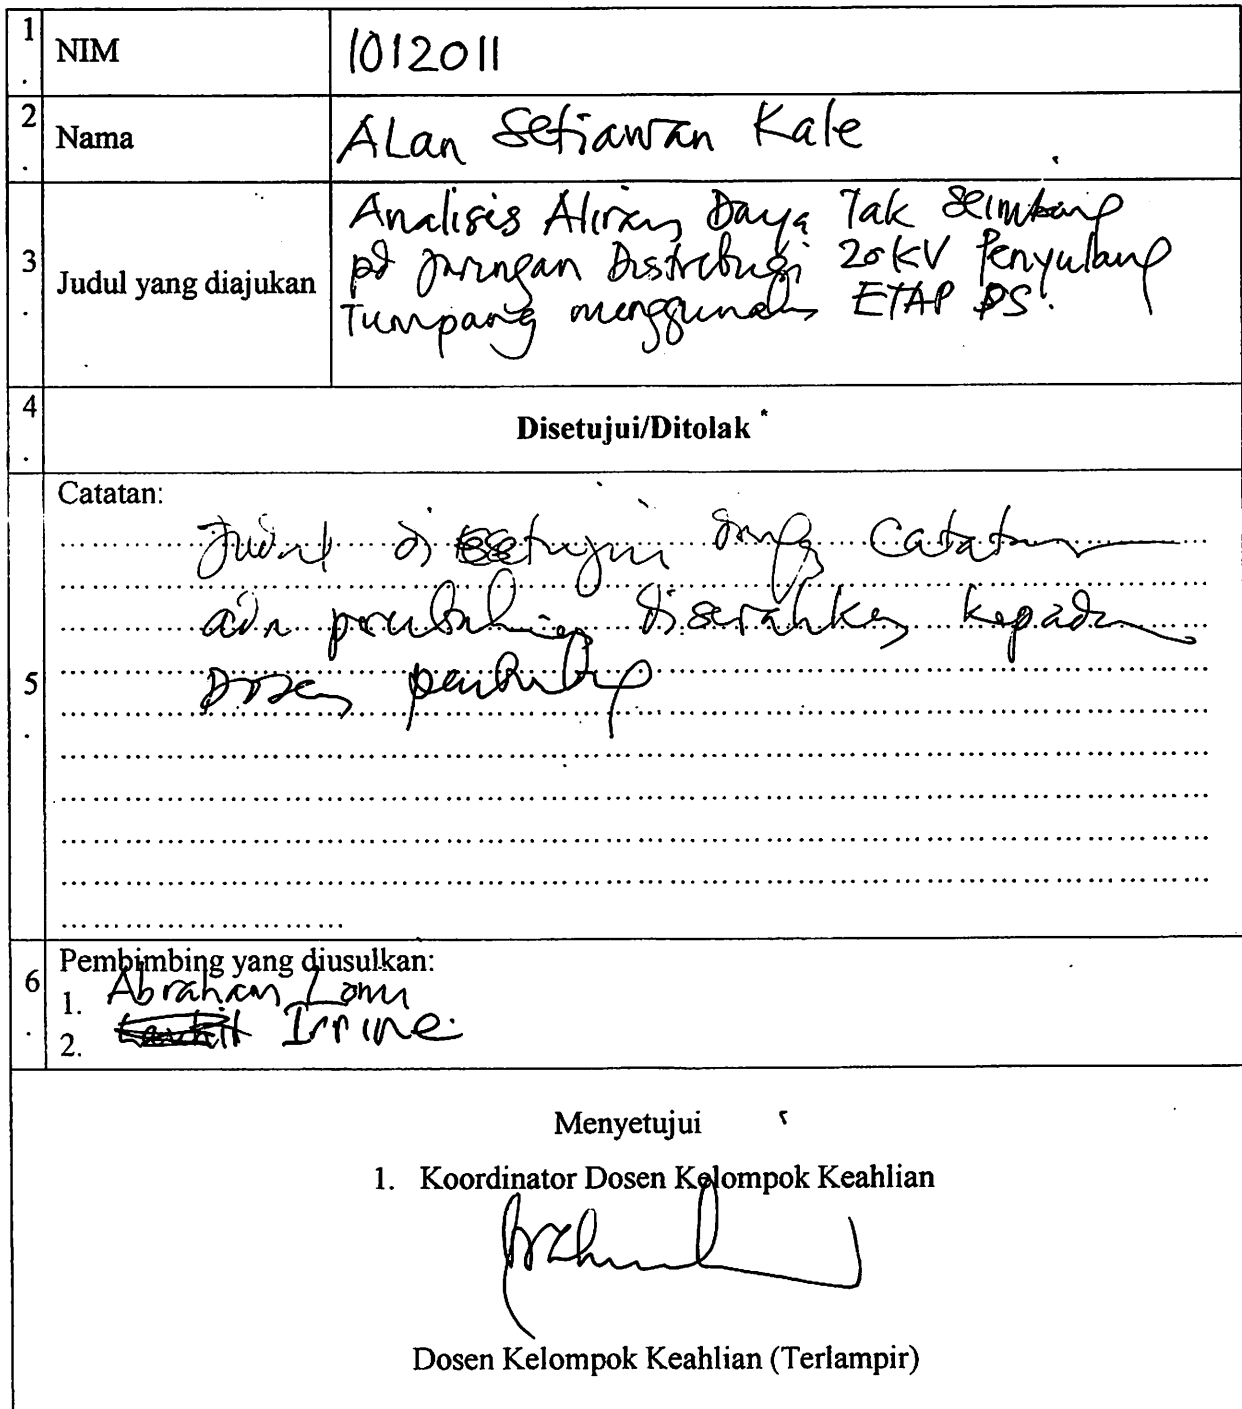 1. NIM 1012011
2. Nama ALan Setiawan Kale
3. Judul yang diajukan
Analisis Aliran Daya Tak Seimbang
pd Jaringan Distribusi 20 KV Penyulang
Tumpang menggunakan ETAP PS.
4. Disetujui/Ditolak *
5. Catatan:
Judul disetujui dengan Catatan
ada perubahan diserahkan kepada
Dosen pembimbing
6. Pembimbing yang diusulkan:
1. Abraham Lomi
2. Irrine
Menyetujui
1. Koordinator Dosen Kelompok Keahlian
Dosen Kelompok Keahlian (Terlampir)